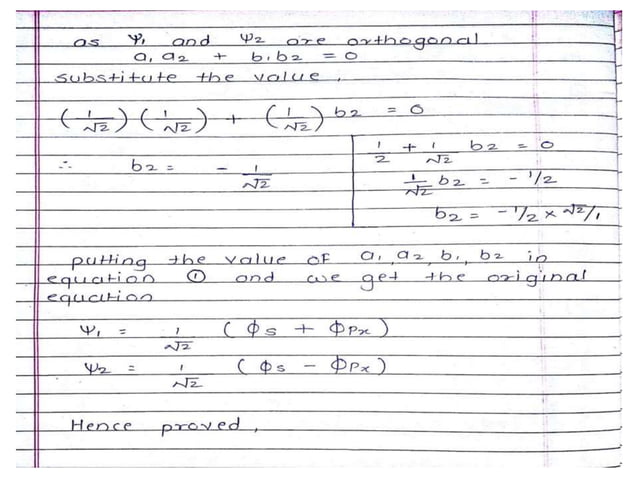 as Ψ₁ and Ψ₂ are orthogonal
a₁ a₂ + b₁ b₂ = 0
substitute the value,
(1/√2) (1/√2) + (1/√2) b₂ = 0
∴ b₂ = - 1/√2
1/2 + 1/√2 b₂ = 0
1/√2 b₂ = - 1/2
b₂ = - 1/2 × √2/1
putting the value of a₁, a₂, b₁, b₂ in
equation ① and we get the original
equation
Ψ₁ = 1/√2 (ϕs + ϕPx)
Ψ₂ = 1/√2 (ϕs - ϕPx)
Hence proved,